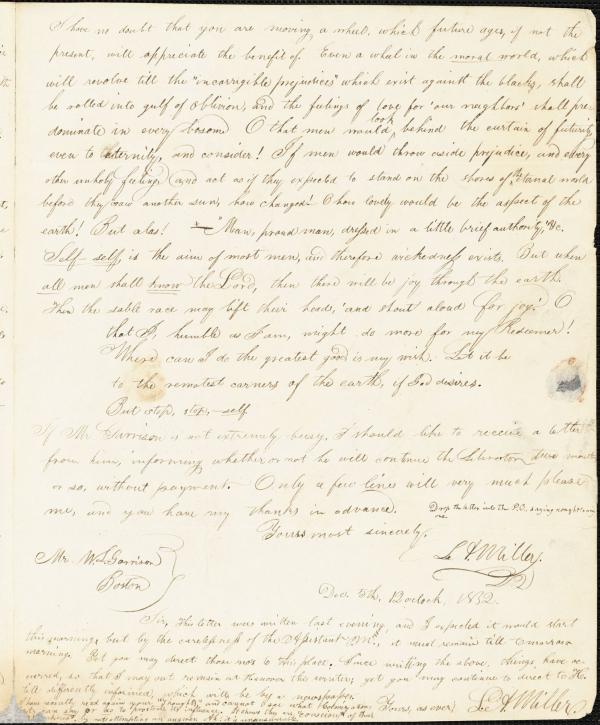 I have no doubt that you are moving a wheel, which future ages, if not the
present, will appreciate the benefit of. Even a wheel in the moral world, which
will revolve till the "incorrigible prejudices" which exist against the blacks, shall
be rolled into gulf of oblivion, and the feelings of love for 'our neighbors' shall pre-
dominate in every bosom. O that men would look behind the curtain of futurity
even to eternity, and consider! If men would throw aside prejudice, and every
other unholy feeling and act as if they expected to stand on the shores of the eternal world
before they saw another sun, how changed! O how lovely would be the aspect of the
earth! But alas! — "Man, proud man, dressed in a little brief authority," &c.
Self self, is the aim of most men, and therefore wickedness exists. But when
all men shall know the Lord, then there will be joy through the earth.
Then the sable race may lift their heads, 'and shout aloud for joy.' O
that I, humble as I am, might do more for my Redeemer!
Where can I do the greatest good is my wish. Let it be
to the remotest corners of the earth, if God desires.
But stop, stop, — self
If Mr Garrison is not extremely busy, I should like to receive a letter
from him, informing whether or not he will continue the Liberator
or so, without payment. Only a few lines will very much please
me, and you have my thanks in advance. Drop the letter into the P.O. saying nought
Yours most sincerely,
Mr. W. L. Garrison
Boston
L. A. Miller.
Dec. 5th, 12 o'clock, 1832.
Sir, This letter was written last evening, and I expected it would start
this morning, but by the carelessness of the Assistant it must remain till tomorrow
morning. Yet you may direct those nos to this place. Since writing the above, things have oc-
curred, so that I may not remain at Hanover the winter; yet you may continue to direct to H.
till differently informed, which will be by a newspaper.
Yours, as ever, L. A. Miller